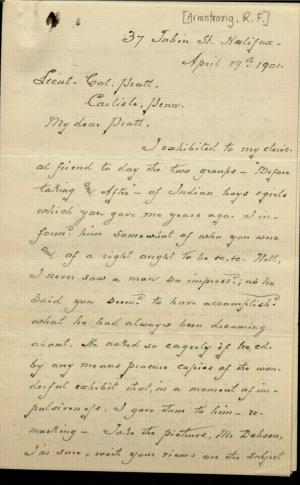 [Armstrong, R. F.]
37 Tobin St. Halifax -
April 19th 1901.
Lieut- Col. Pratt,
Carlisle, Penn.
My dear Pratt,
I exhibited to my cleric-
al friend to day the two groups - "Before
taking & After" - of Indian boys & girls
which you gave me years ago. I in-
formd him somewhat of who you were
& of a right ought to be &c. &c. Well,
I never saw a man so impressd; as he
said you seemd to have accomplishd
what he had always been dreaming
about. He asked so eagerly if he cd.
by any means procure copies of the won-
derful exhibit that, in a moment of im-
pulsiveness, I gave them to him - re-
marking - Take the pictures, Mr Dobson,
I'm sure, with your views on the subject